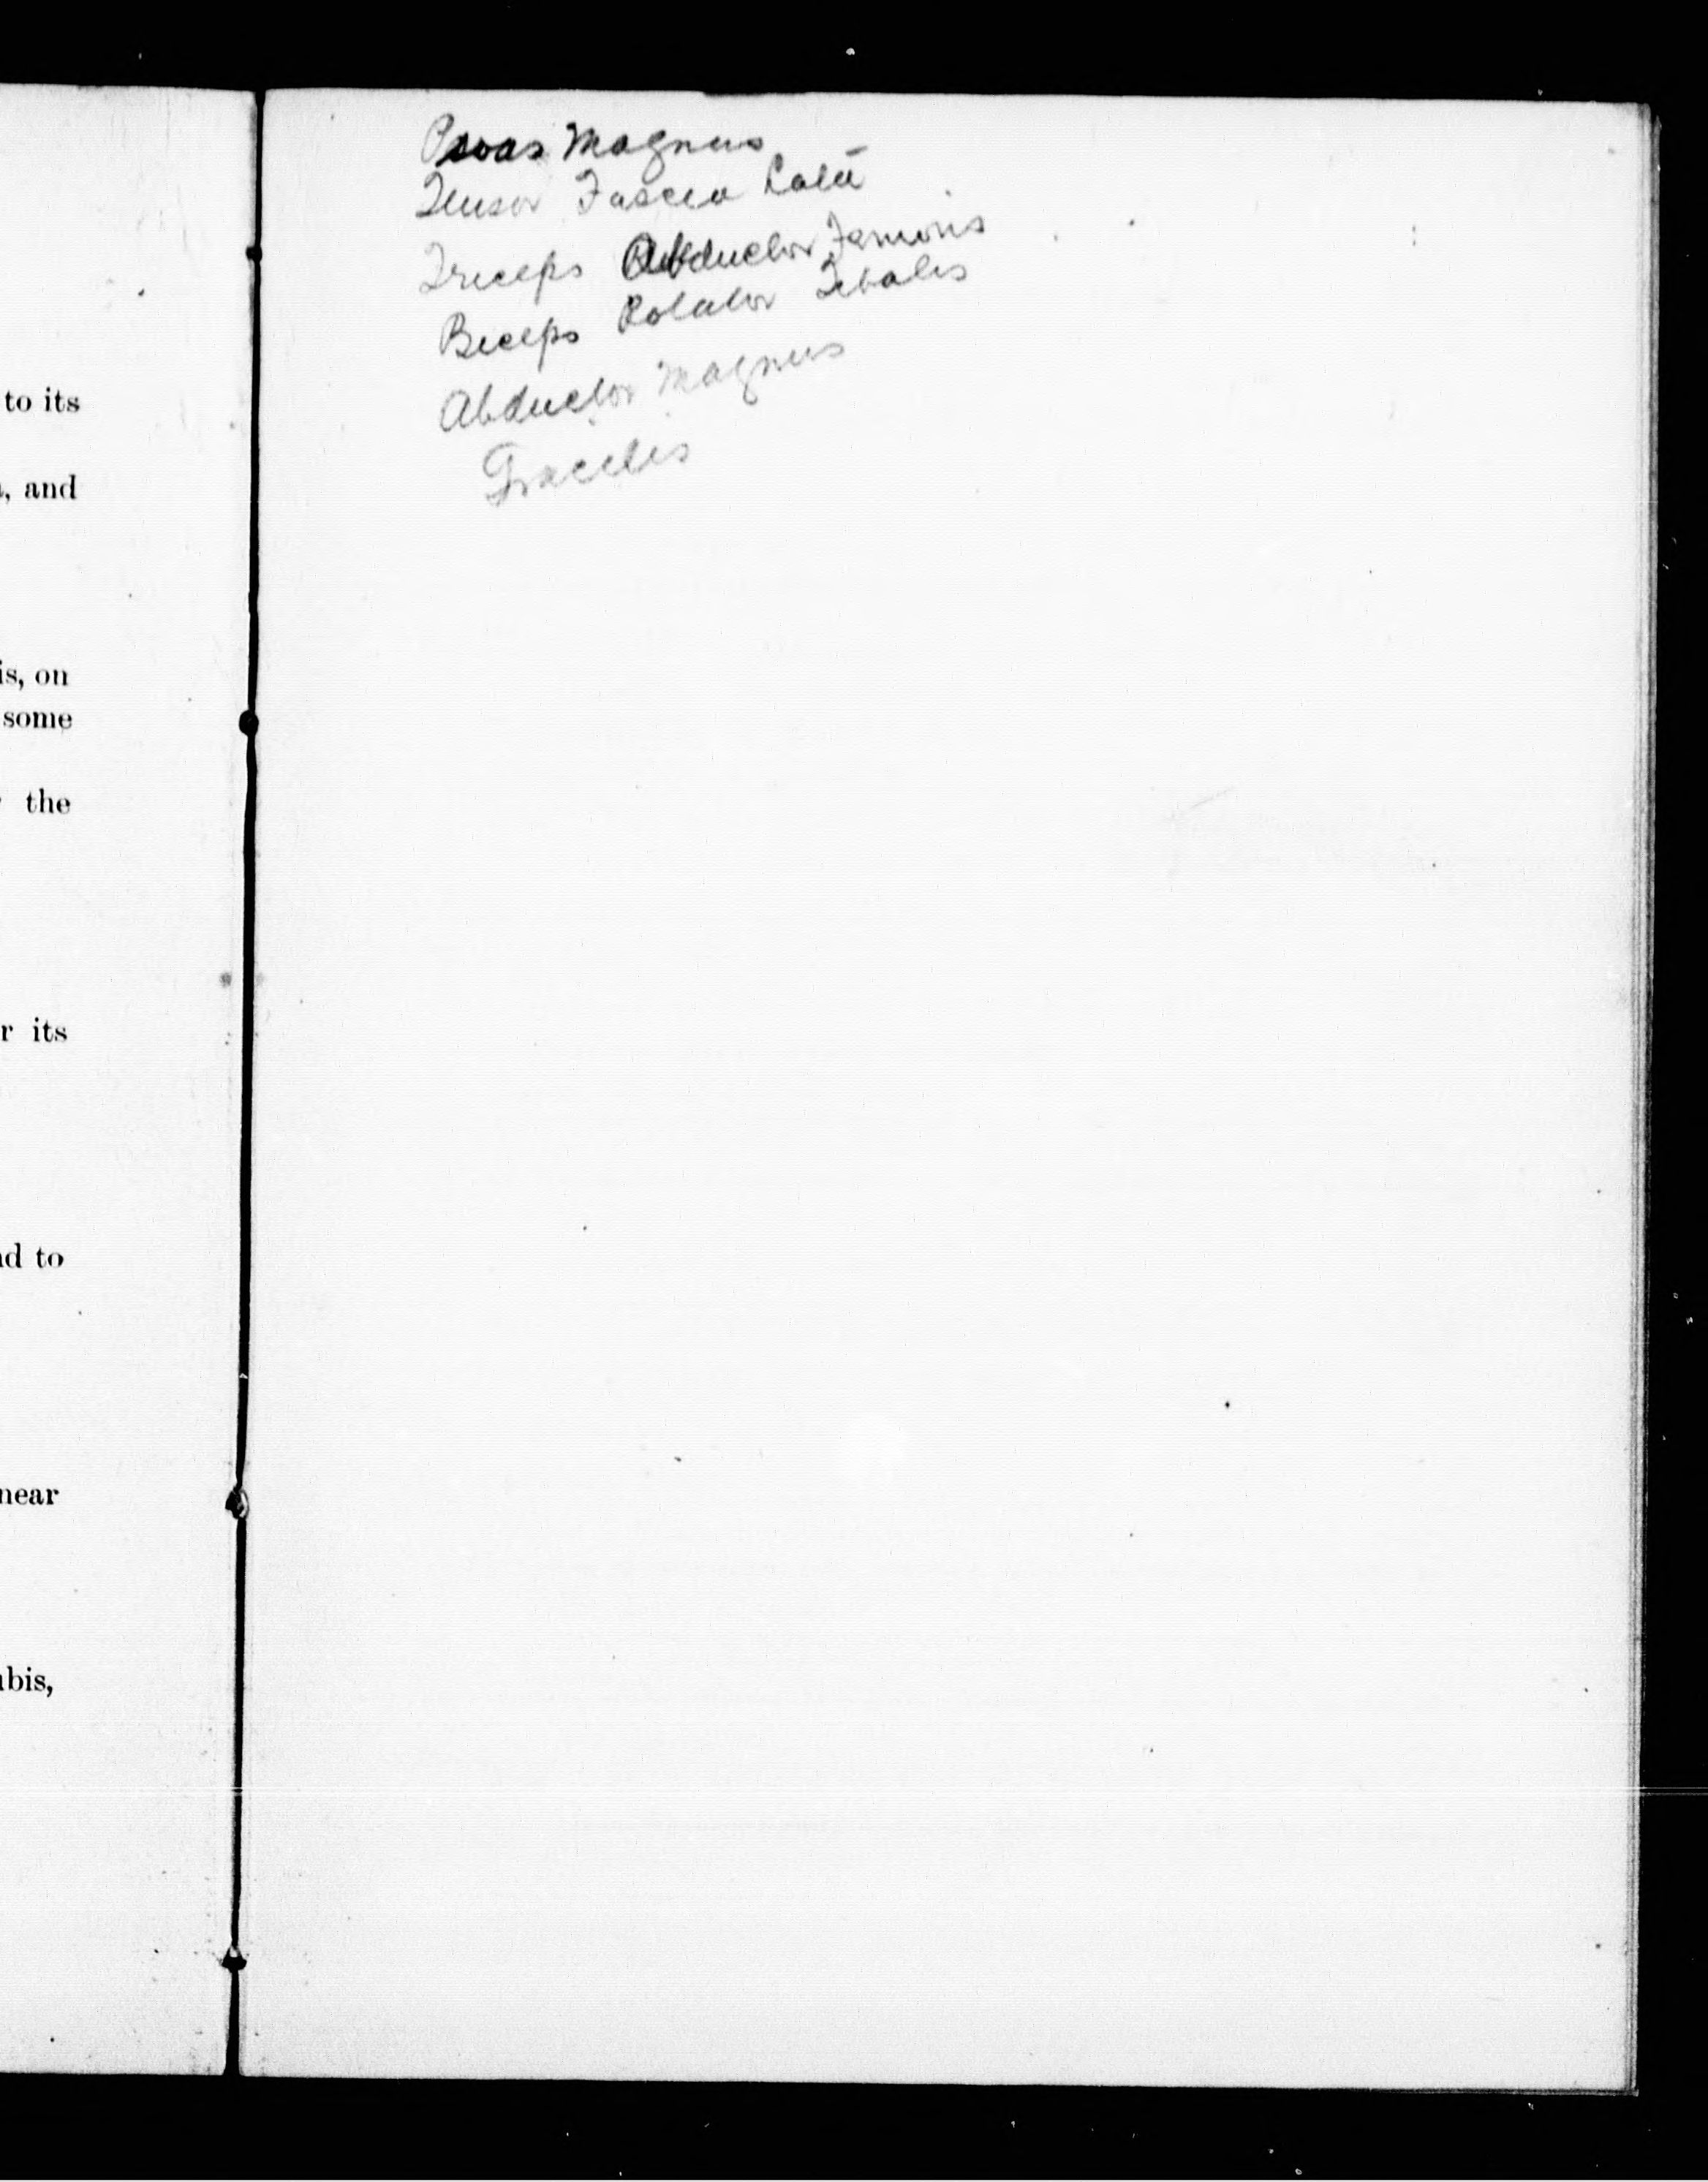 Psoas Magnus
Tensor Fascia Lata
Triceps Abductor Femoris
Biceps Rotator Tibalis
Abductor Magnus
Gracilis
to its
, and
is, on
some
the
r its
d to
near
bis,